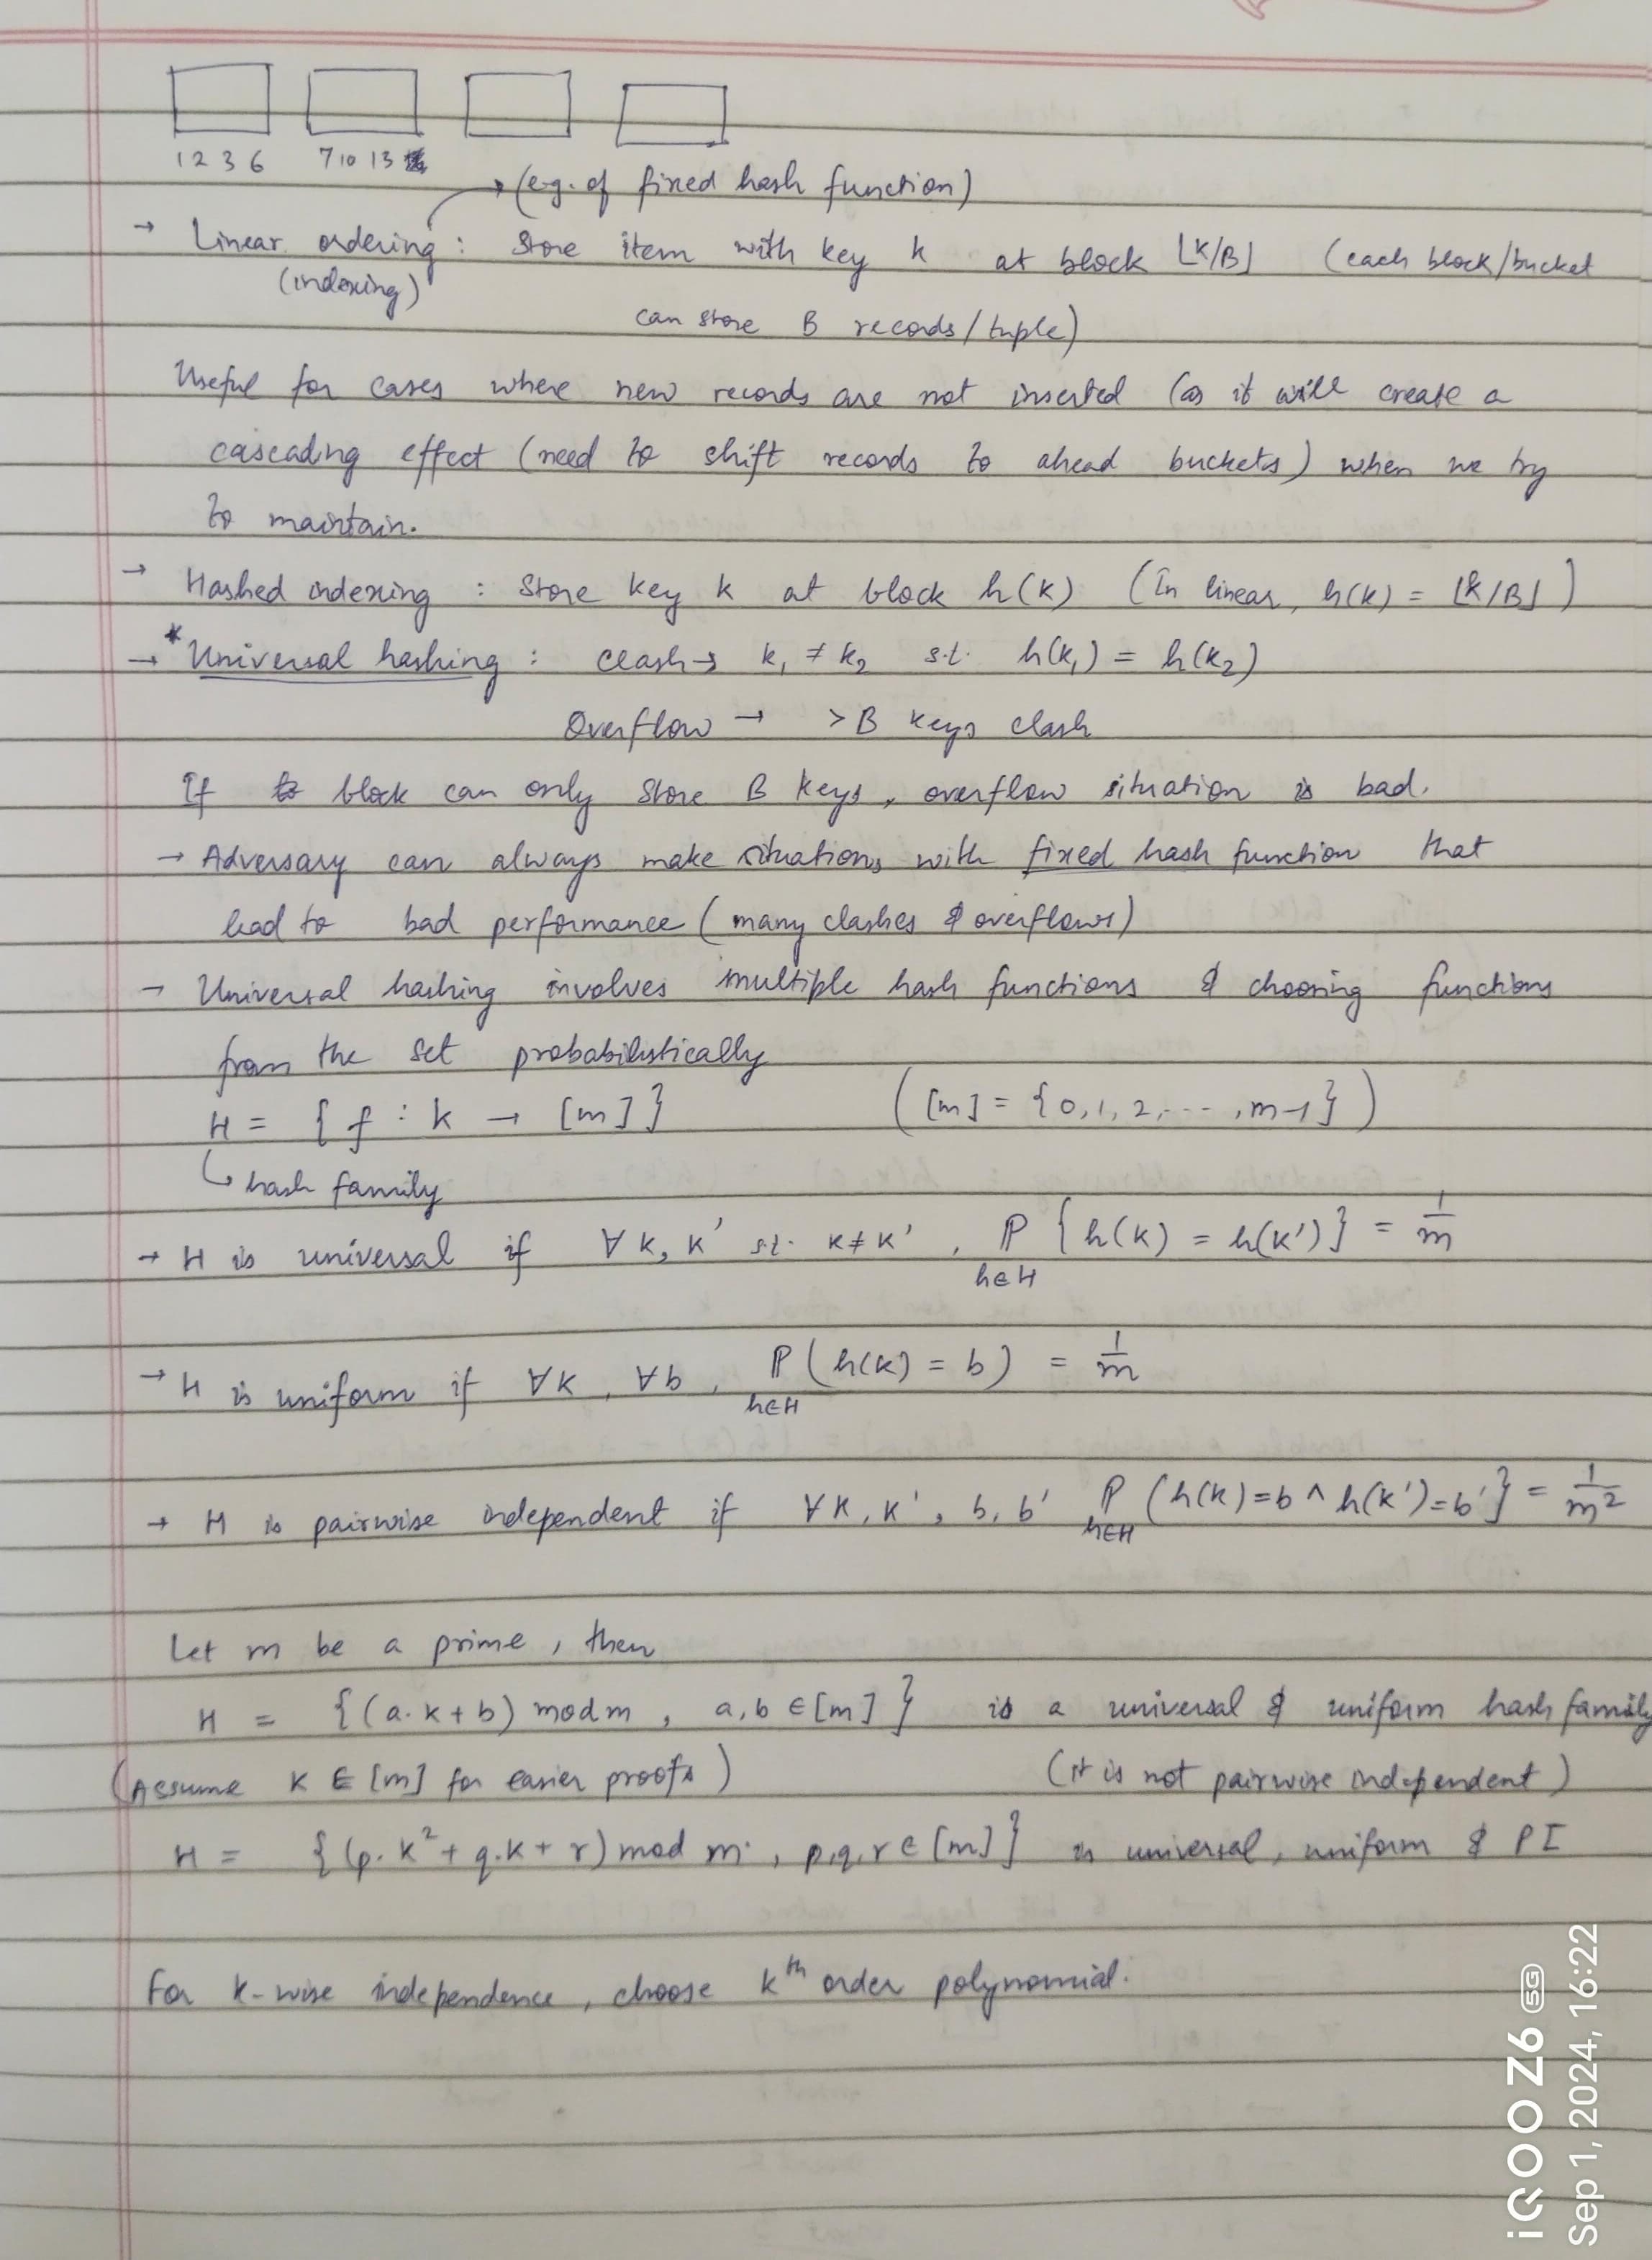 1 2 3 6 7 10 13
(e.g. of fixed hash function)
→ Linear ordering : Store item with key k at block ⌊K/B⌋ (each block/bucket
(indexing)
can store B records/tuple)
Useful for cases where new records are not inserted (as it will create a
cascading effect (need to shift records to ahead buckets) when we try
to maintain.
→ Hashed indexing : Store key k at block h(k) (In linear, h(k) = ⌊k/B⌋)
→ * Universal hashing : clash → k₁ ≠ k₂ s.t. h(k₁) = h(k₂)
Overflow → > B keys clash
If block can only store B keys, overflow situation is bad.
→ Adversary can always make situations with fixed hash function that
lead to bad performance (many clashes & overflows)
→ Universal hashing involves multiple hash functions & choosing functions
from the set probabilistically
H = { f : k → [m] } ([m] = {0, 1, 2, ..., m-1})
↳ hash family
→ H is universal if ∀ k, k' s.t. k ≠ k', ℙ {h(k) = h(k')} = 1/m
h∈H
→ H is uniform if ∀k, ∀b, ℙ (h(k) = b) = 1/m
h∈H
→ H is pairwise independent if ∀k, k', b, b' ℙ (h(k) = b ∧ h(k') = b'} = 1/m²
h∈H
Let m be a prime, then
H = {(a.k + b) mod m, a, b ∈ [m]} is a universal & uniform hash family
(Assume K ∈ [m] for easier proofs) (it is not pairwise independent)
H = {(p.k² + q.k + r) mod m, p,q,r ∈ [m]} is universal, uniform & PI
For k-wise independence, choose kᵗʰ order polynomial.
iQOO Z6 5G
Sep 1, 2024, 16:22